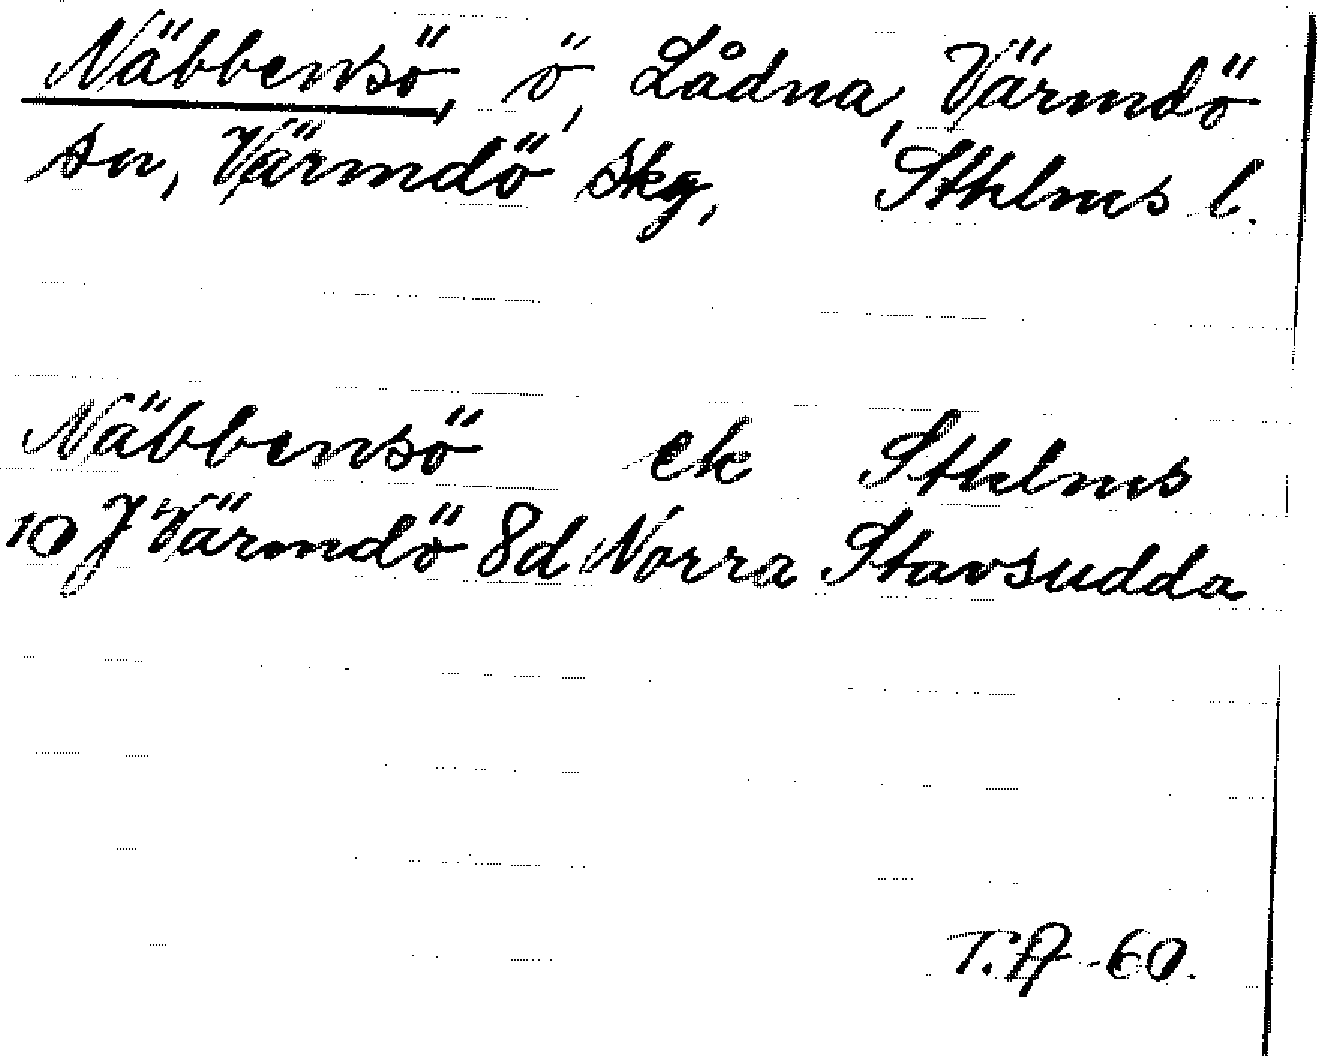 Näbbensö, ö, Lådna, Värmdö
sn, Värmdö skg, Sthlms l.
Näbbensö ek Sthlms
10 J Värmdö 8d Norra Stavsudda
T.A -60.